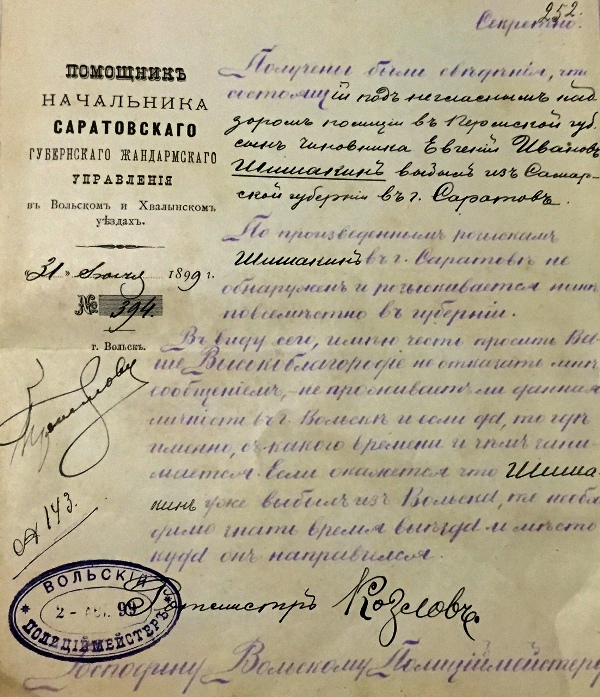 252.
Секретно.
ПОМОЩНИКЪ
НАЧАЛЬНИКА
САРАТОВСКАГО
ГУБЕРНСКАГО ЖАНДАРМСКАГО
УПРАВЛЕНІЯ
въ Вольскомъ и Хвалынскомъ
уѣздахъ.
„31“ Іюля 1899 г.
№ 394.
г. Вольскъ.
А 143.
Получены были свѣдѣнія, что
состоящій подъ негласнымъ над-
зоромъ полиціи въ губ.
сынъ чиновника Евгеній Ивановъ
Шишакинъ выбылъ изъ Самар-
ской губерніи въ г. Саратовъ.
По произведеннымъ розыскамъ
Шишакинъ въ г. Саратовѣ не
обнаруженъ и розыскивается нынѣ
повсемѣстно въ губерніи.
Въ виду сего, имѣю честь просить Ва-
ше Высокоблагородіе не отказать мнѣ
сообщеніемъ, - не проживаетъ ли данная
личность въ г. Вольскѣ и если да, то гдѣ
именно, съ какого времени и чѣмъ зани-
мается. Если окажется что Шиша-
кинъ уже выбылъ изъ Вольска, то необхо-
димо знать время выѣзда и мѣсто
куда онъ направился.
Ротмистръ Козловъ
ВОЛЬСКІЙ
2 - АВГ. 99
ПОЛИЦІЙМЕЙСТЕРЪ
Господину Вольскому Полиціймейстеру